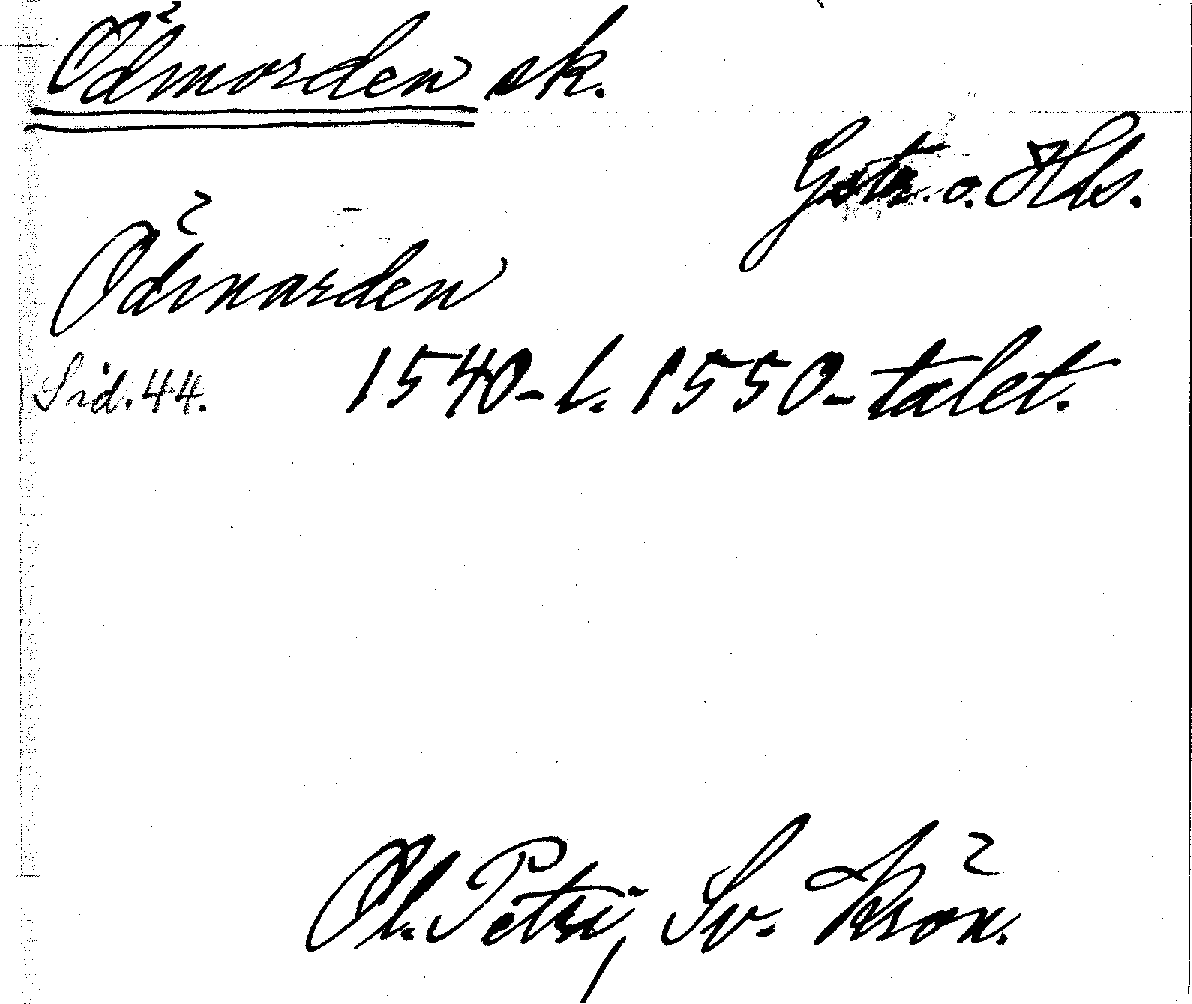 Ödmorden sk.
Gstr. o. Hls.
Ödmarden
Sid. 44. 1540- l. 1550-talet.
Ol. Petri, Sv. Krön.